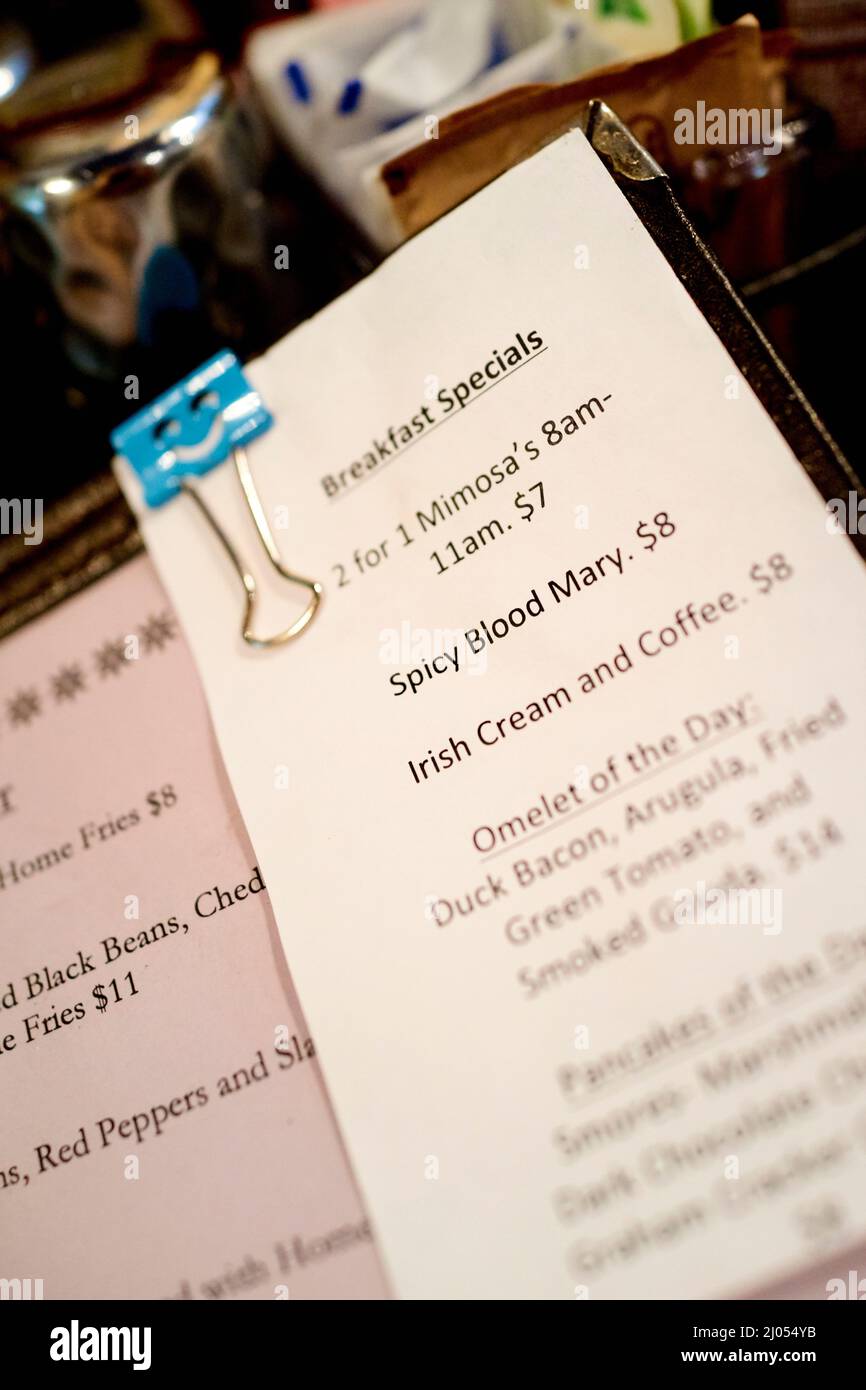 Breakfast Specials
2 for 1 Mimosa’s 8am-
11am. $7
Spicy Blood Mary. $8
Irish Cream and Coffee. $8
Omelet of the Day:
Duck Bacon, Arugula, Fried
Green Tomato, and
Smoked Gouda. $14
Pancakes of the
Smores- Marshmal
Dark Chocolate
Graham Cracker
$8
Home Fries $8
d Black Beans, Ched
e Fries $11
ns, Red Peppers and Sla
d with Home
alamy
Image ID: 2J054YB
www.alamy.com